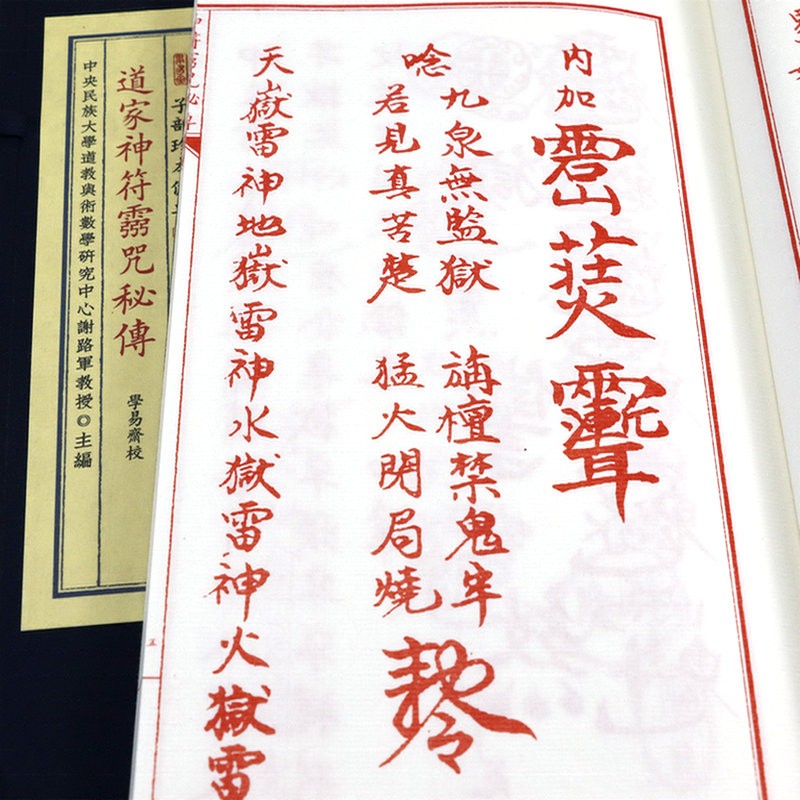 內加
唸
九泉無監獄
旃檀禁鬼牢
若見真苦楚
猛火開局燒
天嶽雷神地嶽雷神水獄雷神火獄雷
道家神符靈咒秘傳
中央民族大學道教與術數學研究中心謝路軍教授◎主編
學易齋校